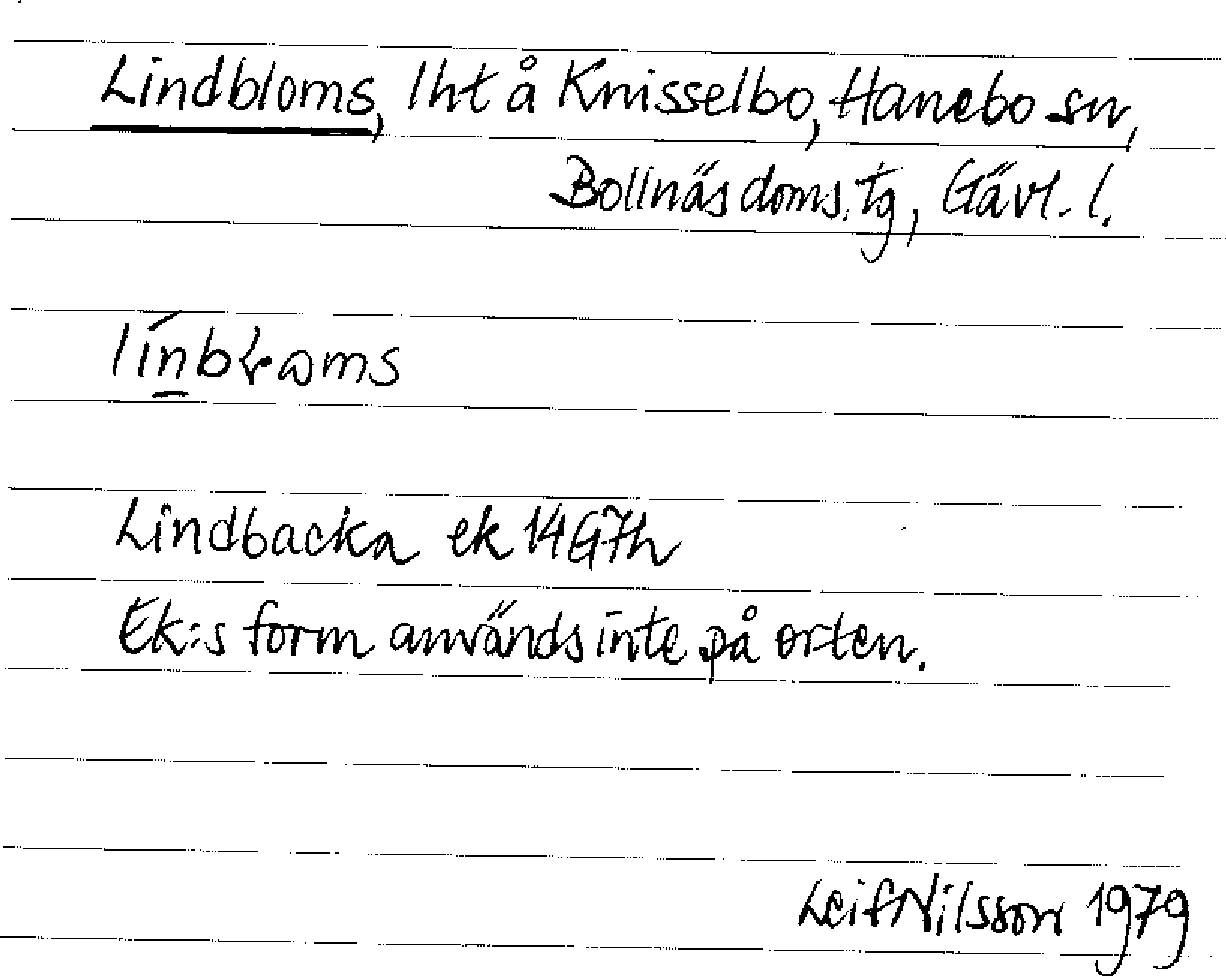 Lindbloms, lht å Knisselbo, Hanebo sn,
Bollnäs doms. tg, Gävl. l.
Lindbacka ek 14G7h
Ek:s form används inte på orten.
Leif Nilsson 1979